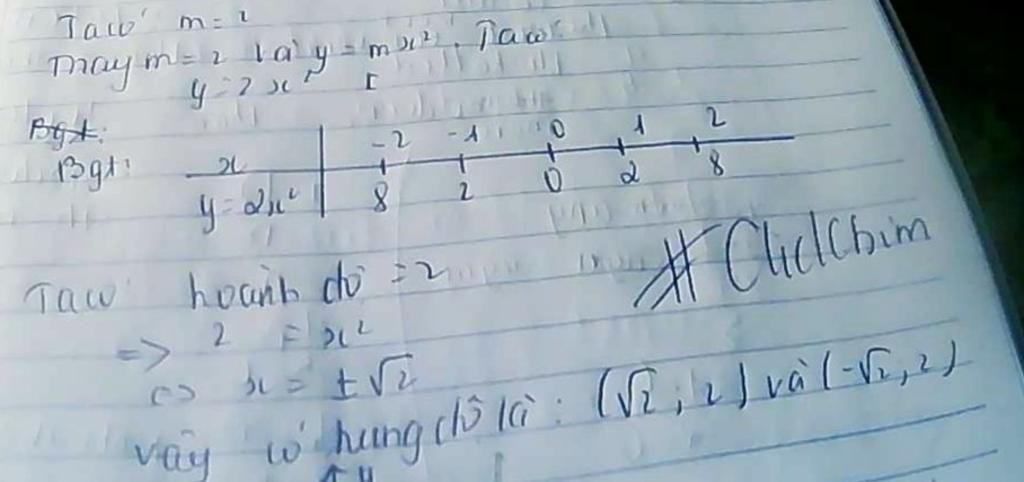 Ta có m = 2
Thay m = 2 và y = mx². Ta có
y = 2x²
Bgt:
Bgt: x -2 -1 0 1 2
y = 2x² 8 2 0 2 8
#ClidChim
Ta có hoành độ = 2
=> 2 = x²
<=> x = ±√2
Vậy có hung độ là: (√2; 2) và (-√2, 2)